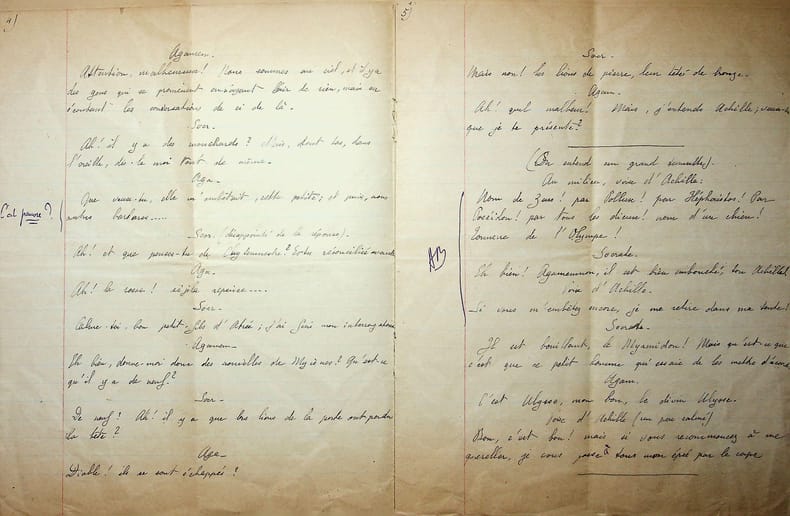 4)
Agamem.
Attention, malheureux! Nous sommes au ciel, et il y a
des gens qui se promènent en n'ayant l'air de rien, mais en
écoutant les conversations de ci de là.
Socr.
Ah! il y a des mouchards? Alors, dans
l'oreille, dis-le moi tout de même.
Aga.
Que veux-tu, elle m'embêtait, cette petite; et puis, nous
autres barbares.....
C'est pauvre?
Socr. (désappointé de la réponse).
Ah! et que penses-tu de Clytemnestre? Es-tu réconcilié avec
Aga.
Ah! la rosse! s'écria
Socr.
Calme-toi, bon petit-fils d'Atrée; j'ai fini mon interrogatoire
Agamem.
Eh bien, donne-moi donc des nouvelles de Mycènes? Qu'est-ce
qu'il y a de neuf?
Socr.
De neuf! Ah! il y a que les lions de la porte ont perdu
la tête?
Aga.
Diable! ils se sont échappés?
5)
Socr.
Mais non! les lions de pierre, leur tête de bronze.
Agam.
Ah! quel malheur! Mais, j'entends Achille; veux-tu
que je te présente?
(On entend un grand tumulte).
Au milieu, voix d'Achille:
Nom de Zeus! par Pollux! par Héphaistos! Par
Poseïdon! par tous les dieux! nom d'un chien!
Tonnerre de l'Olympe!
AB
Socrate.
Eh bien! Agamemnon, il est bien embouché, ton Achille!
Voix d'Achille.
Si vous m'embêtez encore, je me retire dans ma tente!
Socrate.
Il est bouillant, le Myrmidon! Mais qu'est-ce que
c'est que ce petit homme qui essaie de les mettre d'accord
Agam.
C'est Ulysse, mon bon, le divin Ulysse.
Voix d'Achille (un peu calmé)
Bon, c'est bon! mais si vous recommencez à me
quereller, je vous passe à tous mon épée par le corps